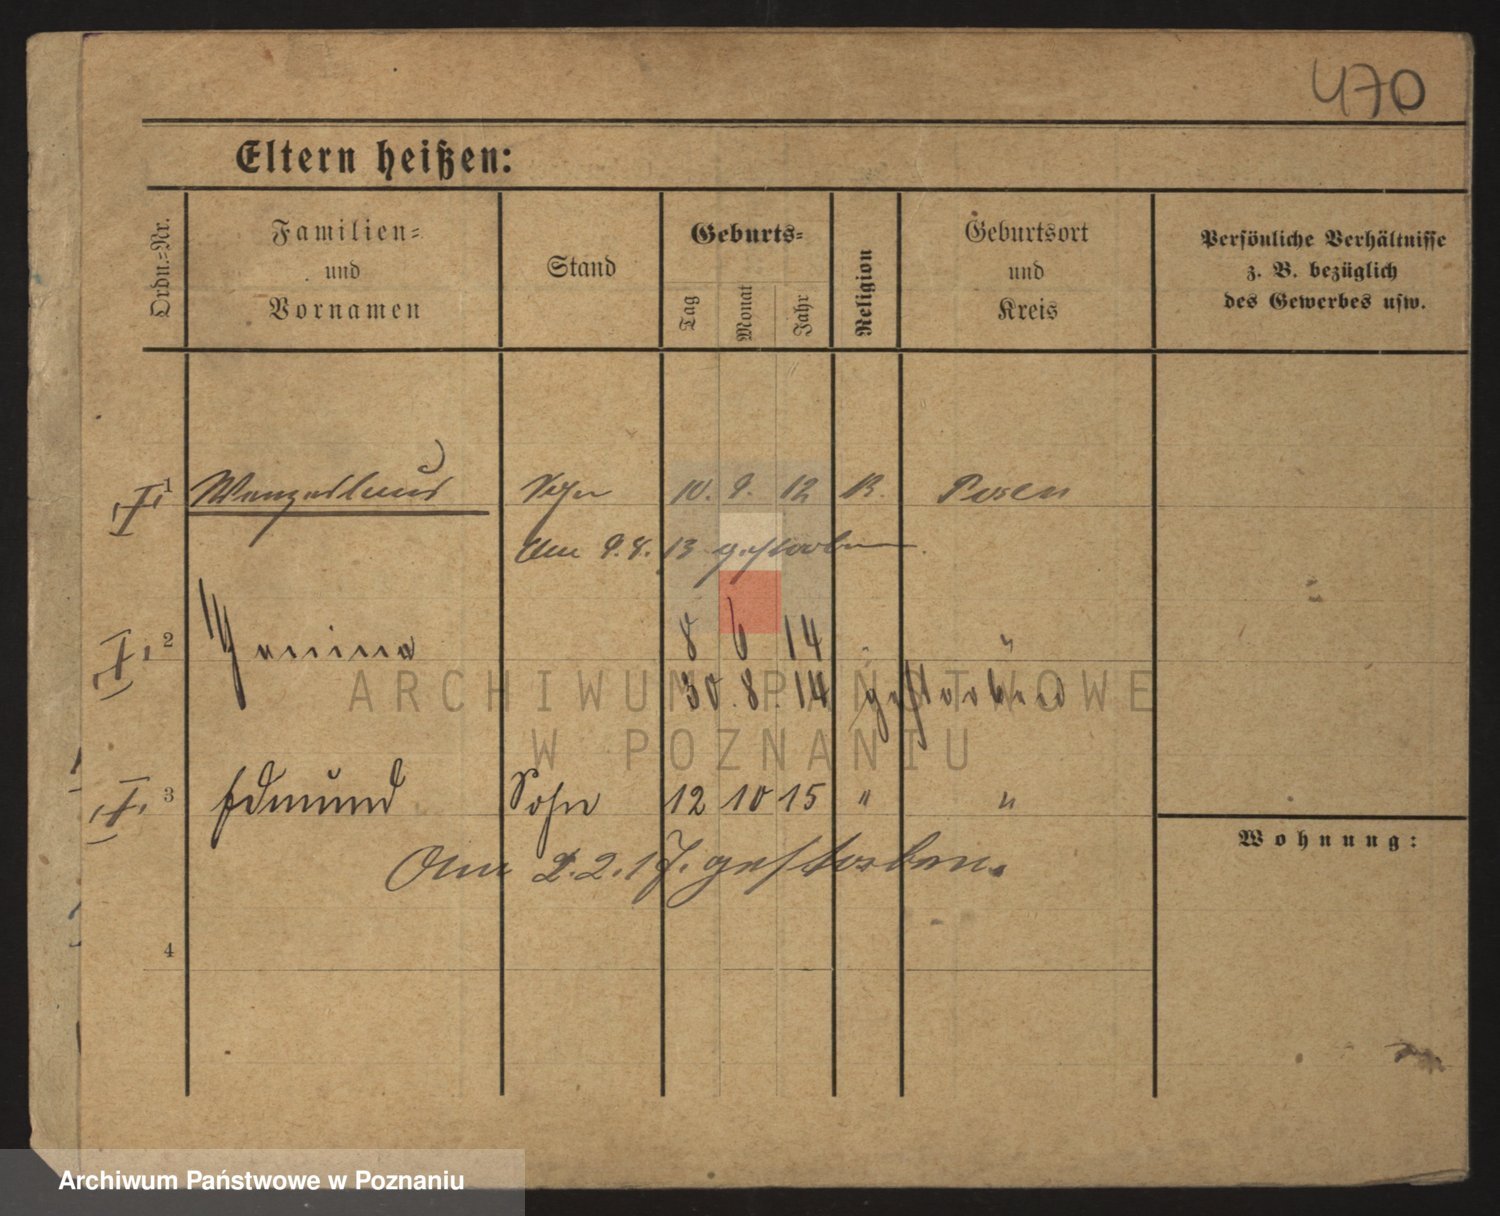 470
Eltern heißen:
Ordn.-Nr.
Familien-
und
Vornamen
Stand
Geburts-
Tag
Monat
Jahr
Religion
Geburtsort
und
Kreis
Persönliche Verhältnisse
z. B. bezüglich
des Gewerbes usw.
1 Wenzeslaus Sohn 10. 9. 12 K. Posen
Am 9. 8. 13 gestorben.
2 Janina 8 6 14 "
30. 8. 14 gestorben
3 Edmund Sohn 12 10 15 " "
Am 2. 2. 17. gestorben.
4
Wohnung:
ARCHIWUM PAŃSTWOWE
W POZNANIU
Archiwum Państwowe w Poznaniu